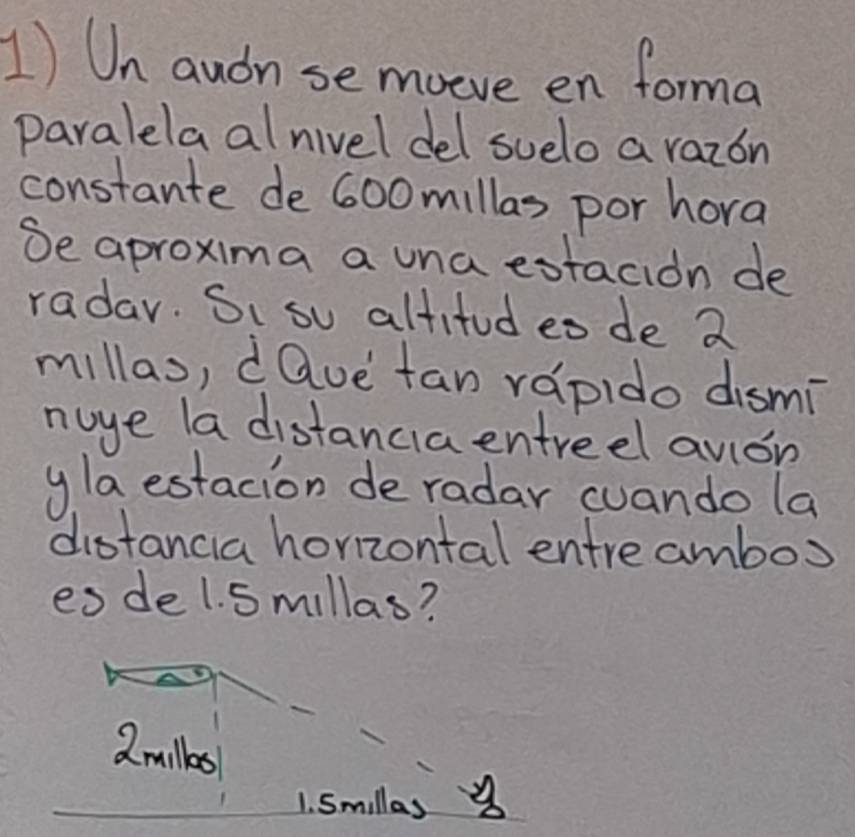 1) Un avión se mueve en forma
paralela al nivel del suelo a razón
constante de 600 millas por hora
Se aproxima a una estación de
radar. Si su altitud es de 2
millas, ¿Qué tan rápido dismi
nuye la distancia entre el avión
y la estación de radar cuando la
distancia horizontal entre ambos
es de 1.5 millas?
2 millas
1.5 millas